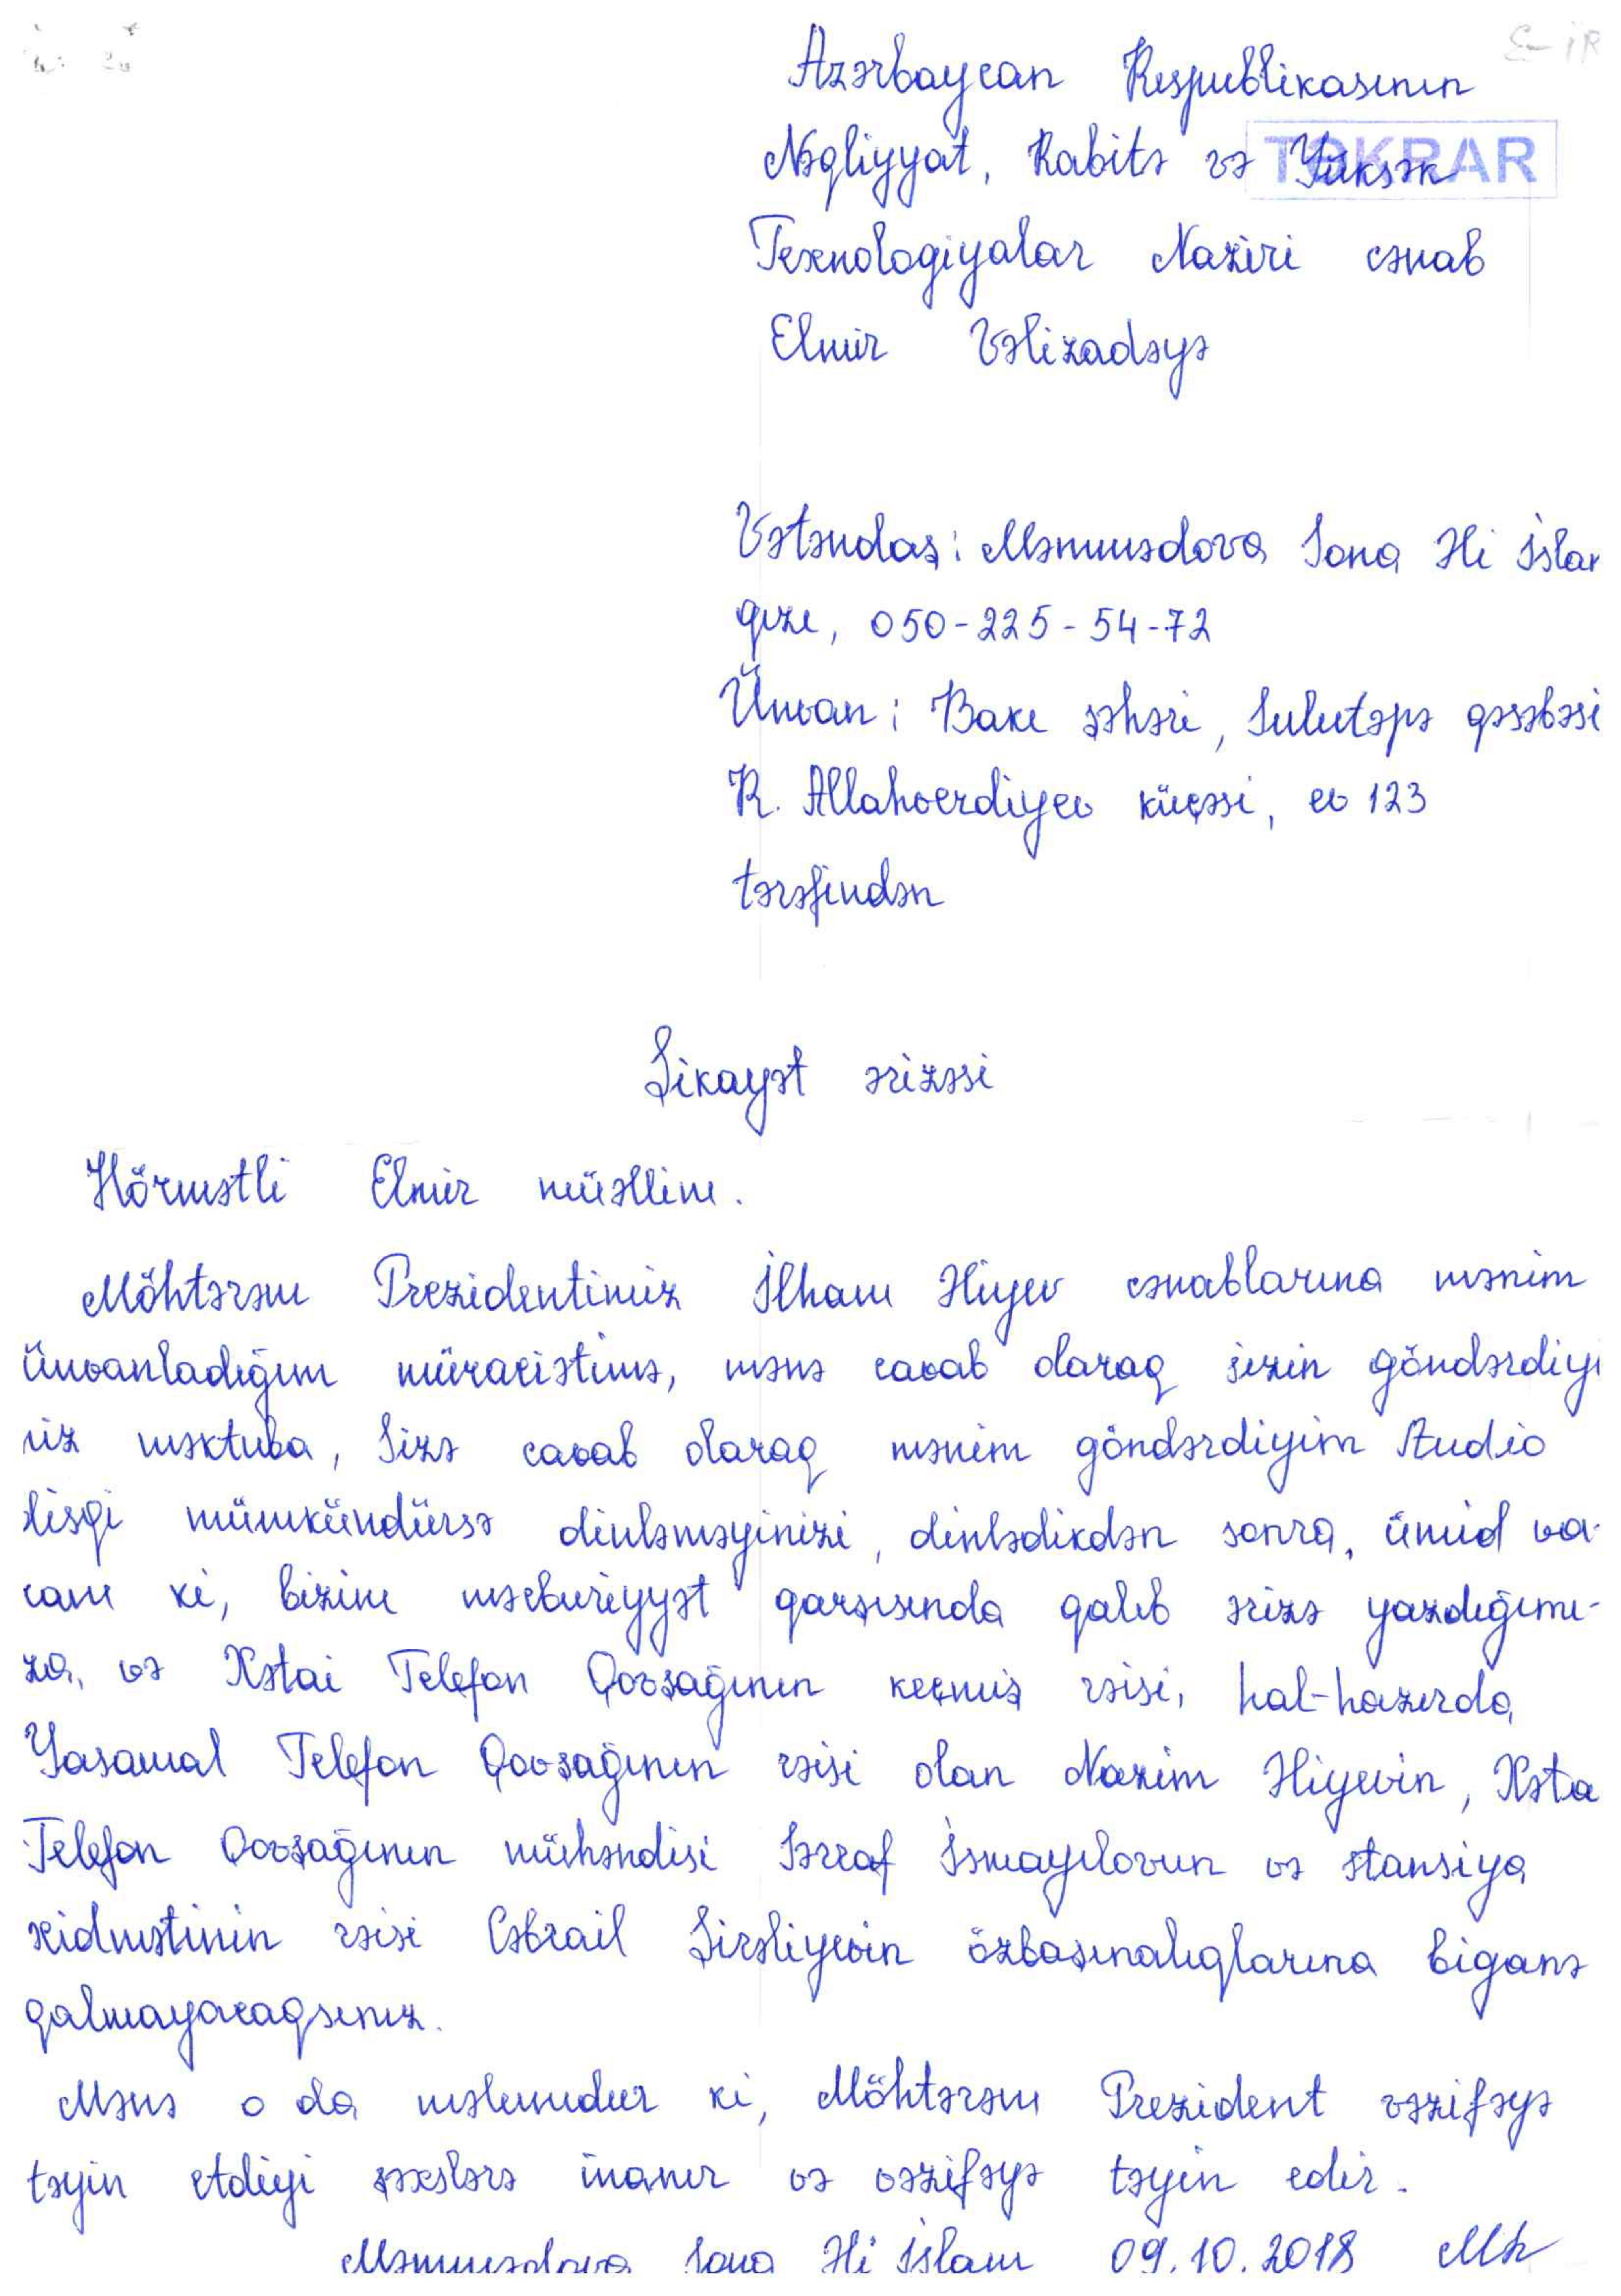 Azərbaycan Respublikasının
Nəqliyyat, Rabitə və Yüksək
TƏKRAR
Texnologiyalar Naziri cənab
Elmir Vəlizadəyə
Vətəndaş: Məmmədova Sona Əli İslam
qızı, 050-225-54-72
Ünvan: Bakı şəhəri, Sulutəpə qəsəbəsi
R. Allahverdiyev küçəsi, ev 123
tərəfindən
Şikayət ərizəsi
Hörmətli Elmir müəllim.
Möhtərəm Prezidentimiz İlham Əliyev cənablarına mənim
ünvanladığım müraciətimə, mənə cavab olaraq sizin göndərdiyi
niz məktuba, Sizə cavab olaraq mənim göndərdiyim Audio
diski mümkündürsə dinləməyinizi, dinlədikdən sonra, ümid va-
ram ki, bizim məcburiyyət qarşısında qalıb ərizə yazdığımı-
za, və Xətai Telefon Qovşağının keçmiş rəisi, hal-hazırda
Yasamal Telefon Qovşağının rəisi olan Nazim Əliyevin, Xəta
Telefon Qovşağının mühəndisi Sərraf İsmayılovun və stansiya
xidmətinin rəisi Cəbrail Şirəliyevin özbaşınalıqlarına biganə
qalmayacaqsınız.
Mənə o da məlumdur ki, Möhtərəm Prezident vəzifəyə
təyin etdiyi şəxslərə inanır və vəzifəyə təyin edir.
Məmmədova Sona Əli İslam 09.10.2018